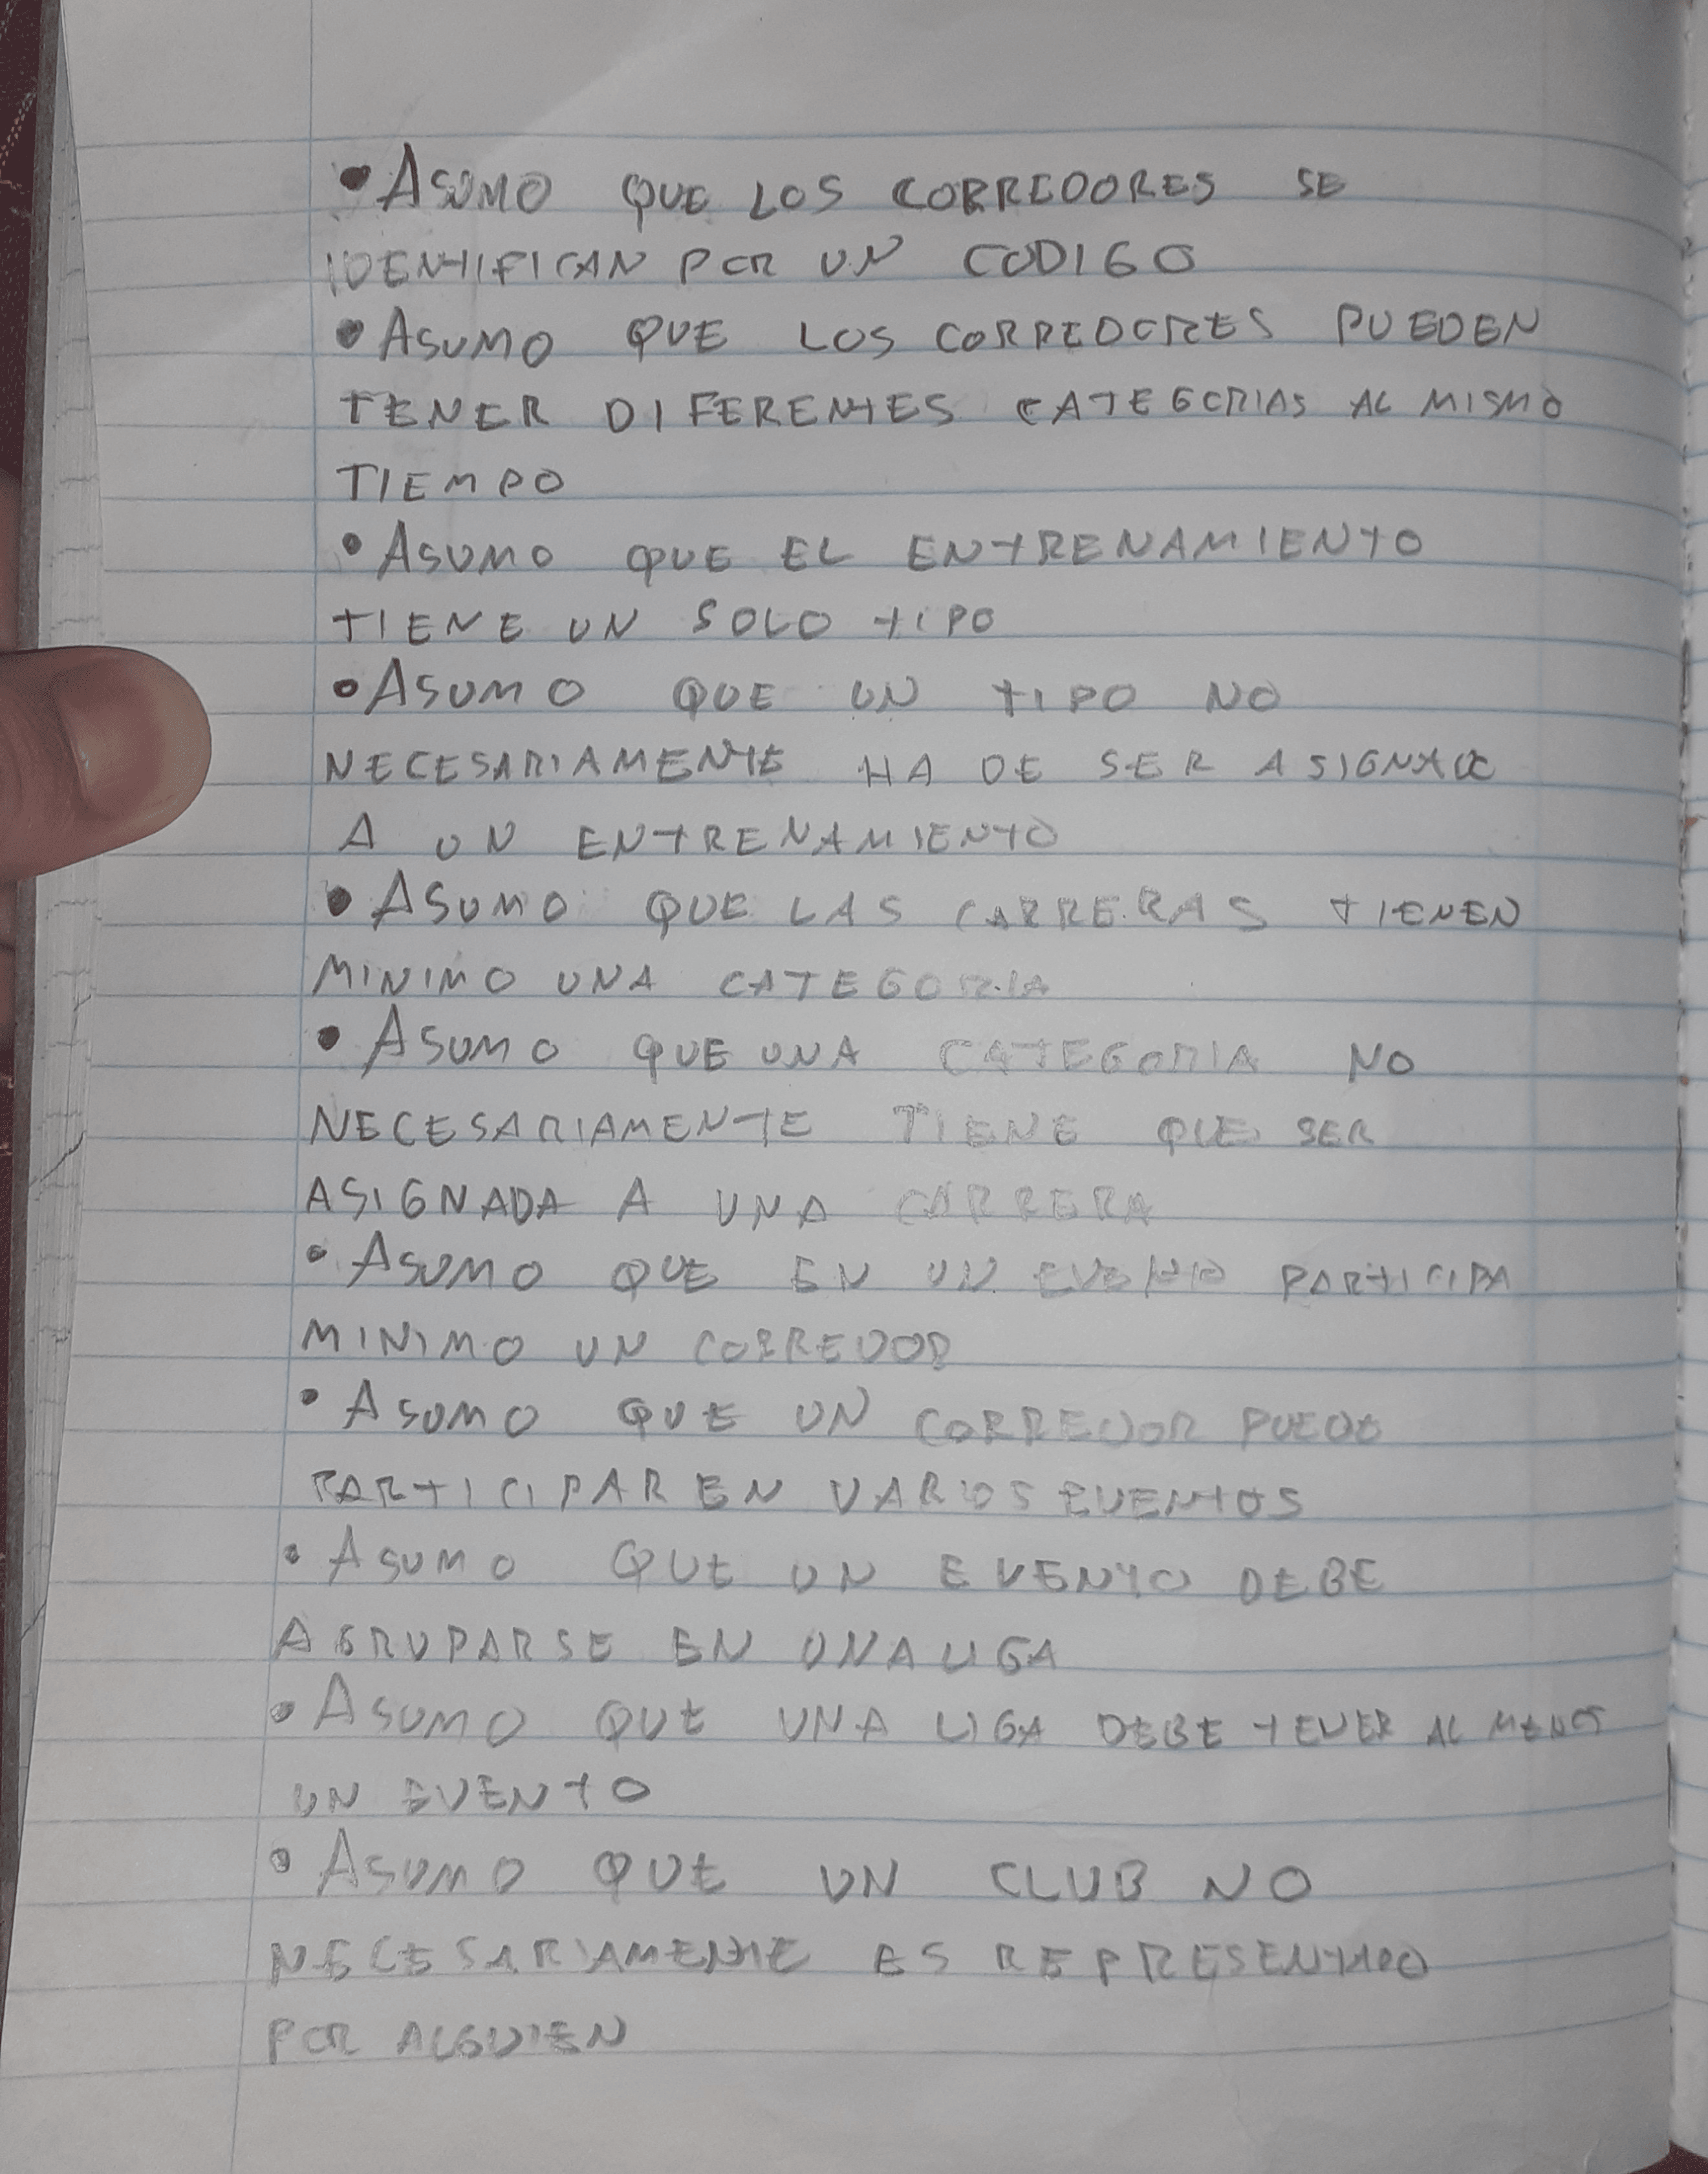 • ASUMO QUE LOS CORREDORES SE
IDENTIFICAN POR UN CODIGO
• ASUMO QUE LOS CORREDORES PUEDEN
TENER DIFERENTES CATEGORIAS AL MISMO
TIEMPO
• ASUMO QUE EL ENTRENAMIENTO
TIENE UN SOLO TIPO
• ASUMO QUE UN TIPO NO
NECESARIAMENTE HA DE SER ASIGNADO
A UN ENTRENAMIENTO
• ASUMO QUE LAS CARRERAS TIENEN
MINIMO UNA CATEGORIA
• ASUMO QUE UNA CATEGORIA NO
NECESARIAMENTE TIENE QUE SER
ASIGNADA A UNA CARRERA
• ASUMO QUE EN UN EVENTO PARTICIPA
MINIMO UN CORREDOR
• ASUMO QUE UN CORREDOR PUEDE
PARTICIPAR EN VARIOS EVENTOS
• ASUMO QUE UN EVENTO DEBE
AGRUPARSE EN UNA LIGA
• ASUMO QUE UNA LIGA DEBE TENER AL MENOS
UN EVENTO
• ASUMO QUE UN CLUB NO
NECESARIAMENTE ES REPRESENTADO
POR ALGUIEN